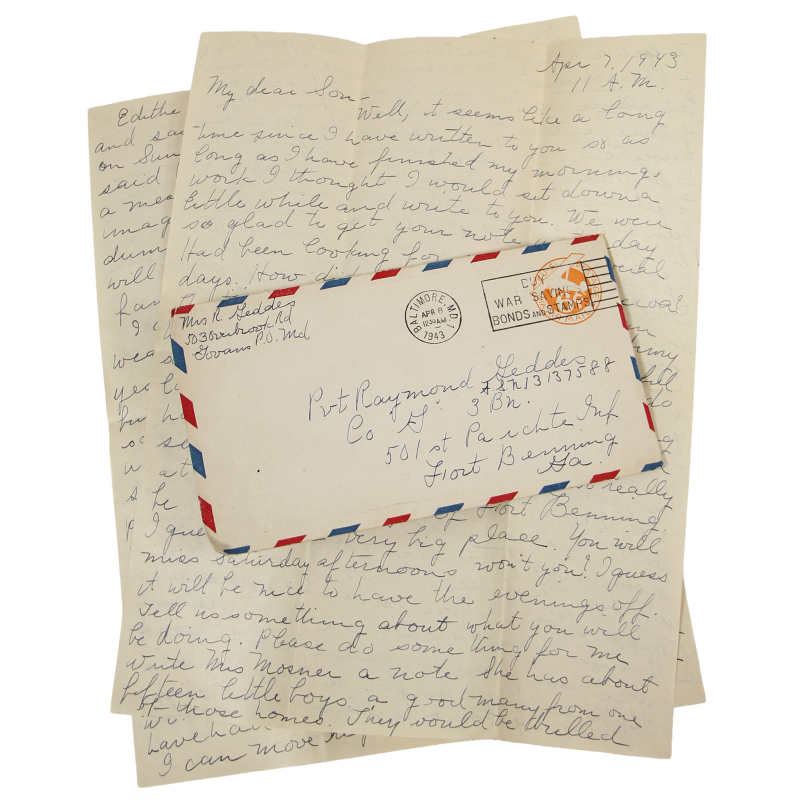 Apr 7, 1943
11 A.M.
My dear Son-
Well, it seems like a long
time since I have written to you so as
long as I have finished my morning
work I thought I would sit down a
little while and write to you. We were
so glad to get your note today
Had been looking for
days. How did
BUY
WAR SAVINGS
BONDS AND STAMPS
BALTIMORE, MD. 1
APR 8
12 30 AM
1943
Mrs R. Geddes
503 Overbrook Rd
Govans P.O. Md
Pvt Raymond Geddes
A.S.N 13137588
Co G. 3 Bn.
501st Parchte Inf
Fort Benning
Ga.
really
of Fort Benning.
I gue very big place. You will
miss Saturday afternoons won't you? I guess
it will be nice to have the evenings off.
Tell us something about what you will
be doing. Please do some thing for me
Write Mrs Mosner a note She has about
fifteen little boys, a good many from one
of those homes. They would be thrilled
Edithe
and sa
on Sun
said
a mes
imag
dum
will
far
I c
wea
yes
have ha
I can move